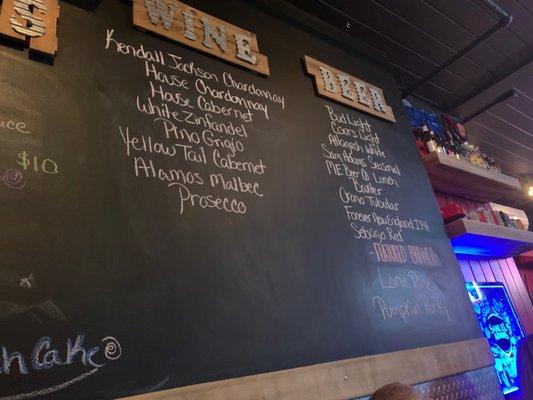 S
uce
$10
h Cake
WINE
Kendall Jackson Chardonnay
House Chardonnay
House Cabernet
White Zinfandel
Pino Grigio
Yellow Tail Cabernet
Alamos Malbec
Prosecco
BEER
Bud Light
Coors Light
Allagash White
Sam Adams Seasonal
ME Beer Co Lunch
Baxter
Orono Tubular
Forever New England IPA
Sebago Red
-FEATURED BREWER-
Lone Pine
Pumpkin Party